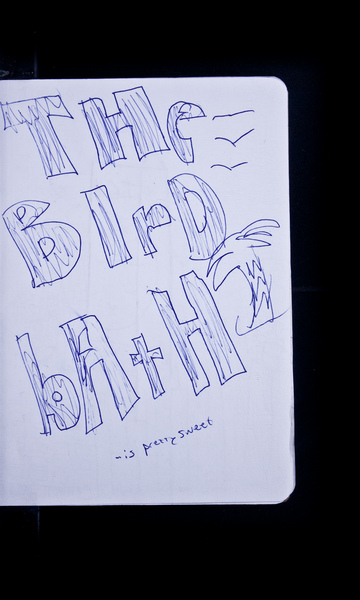 THe
BIrD
bAtH
-is pretty sweet